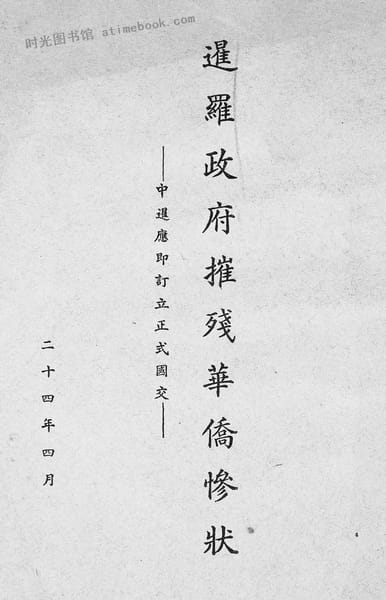 时光图书馆 atimebook.com
暹羅政府摧殘華僑慘狀
——中暹應即訂立正式國交——
二十四年四月